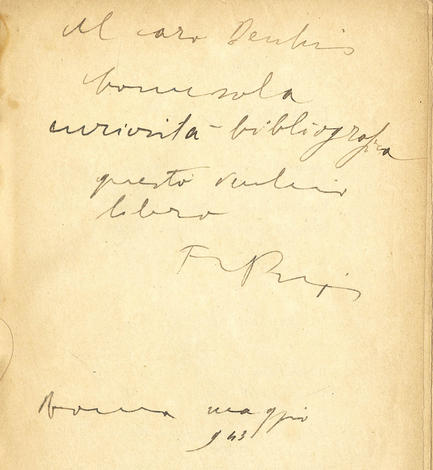 Al caro
come sola
curiosità - bibliografica
questo vecchio
libro
Roma maggio
943